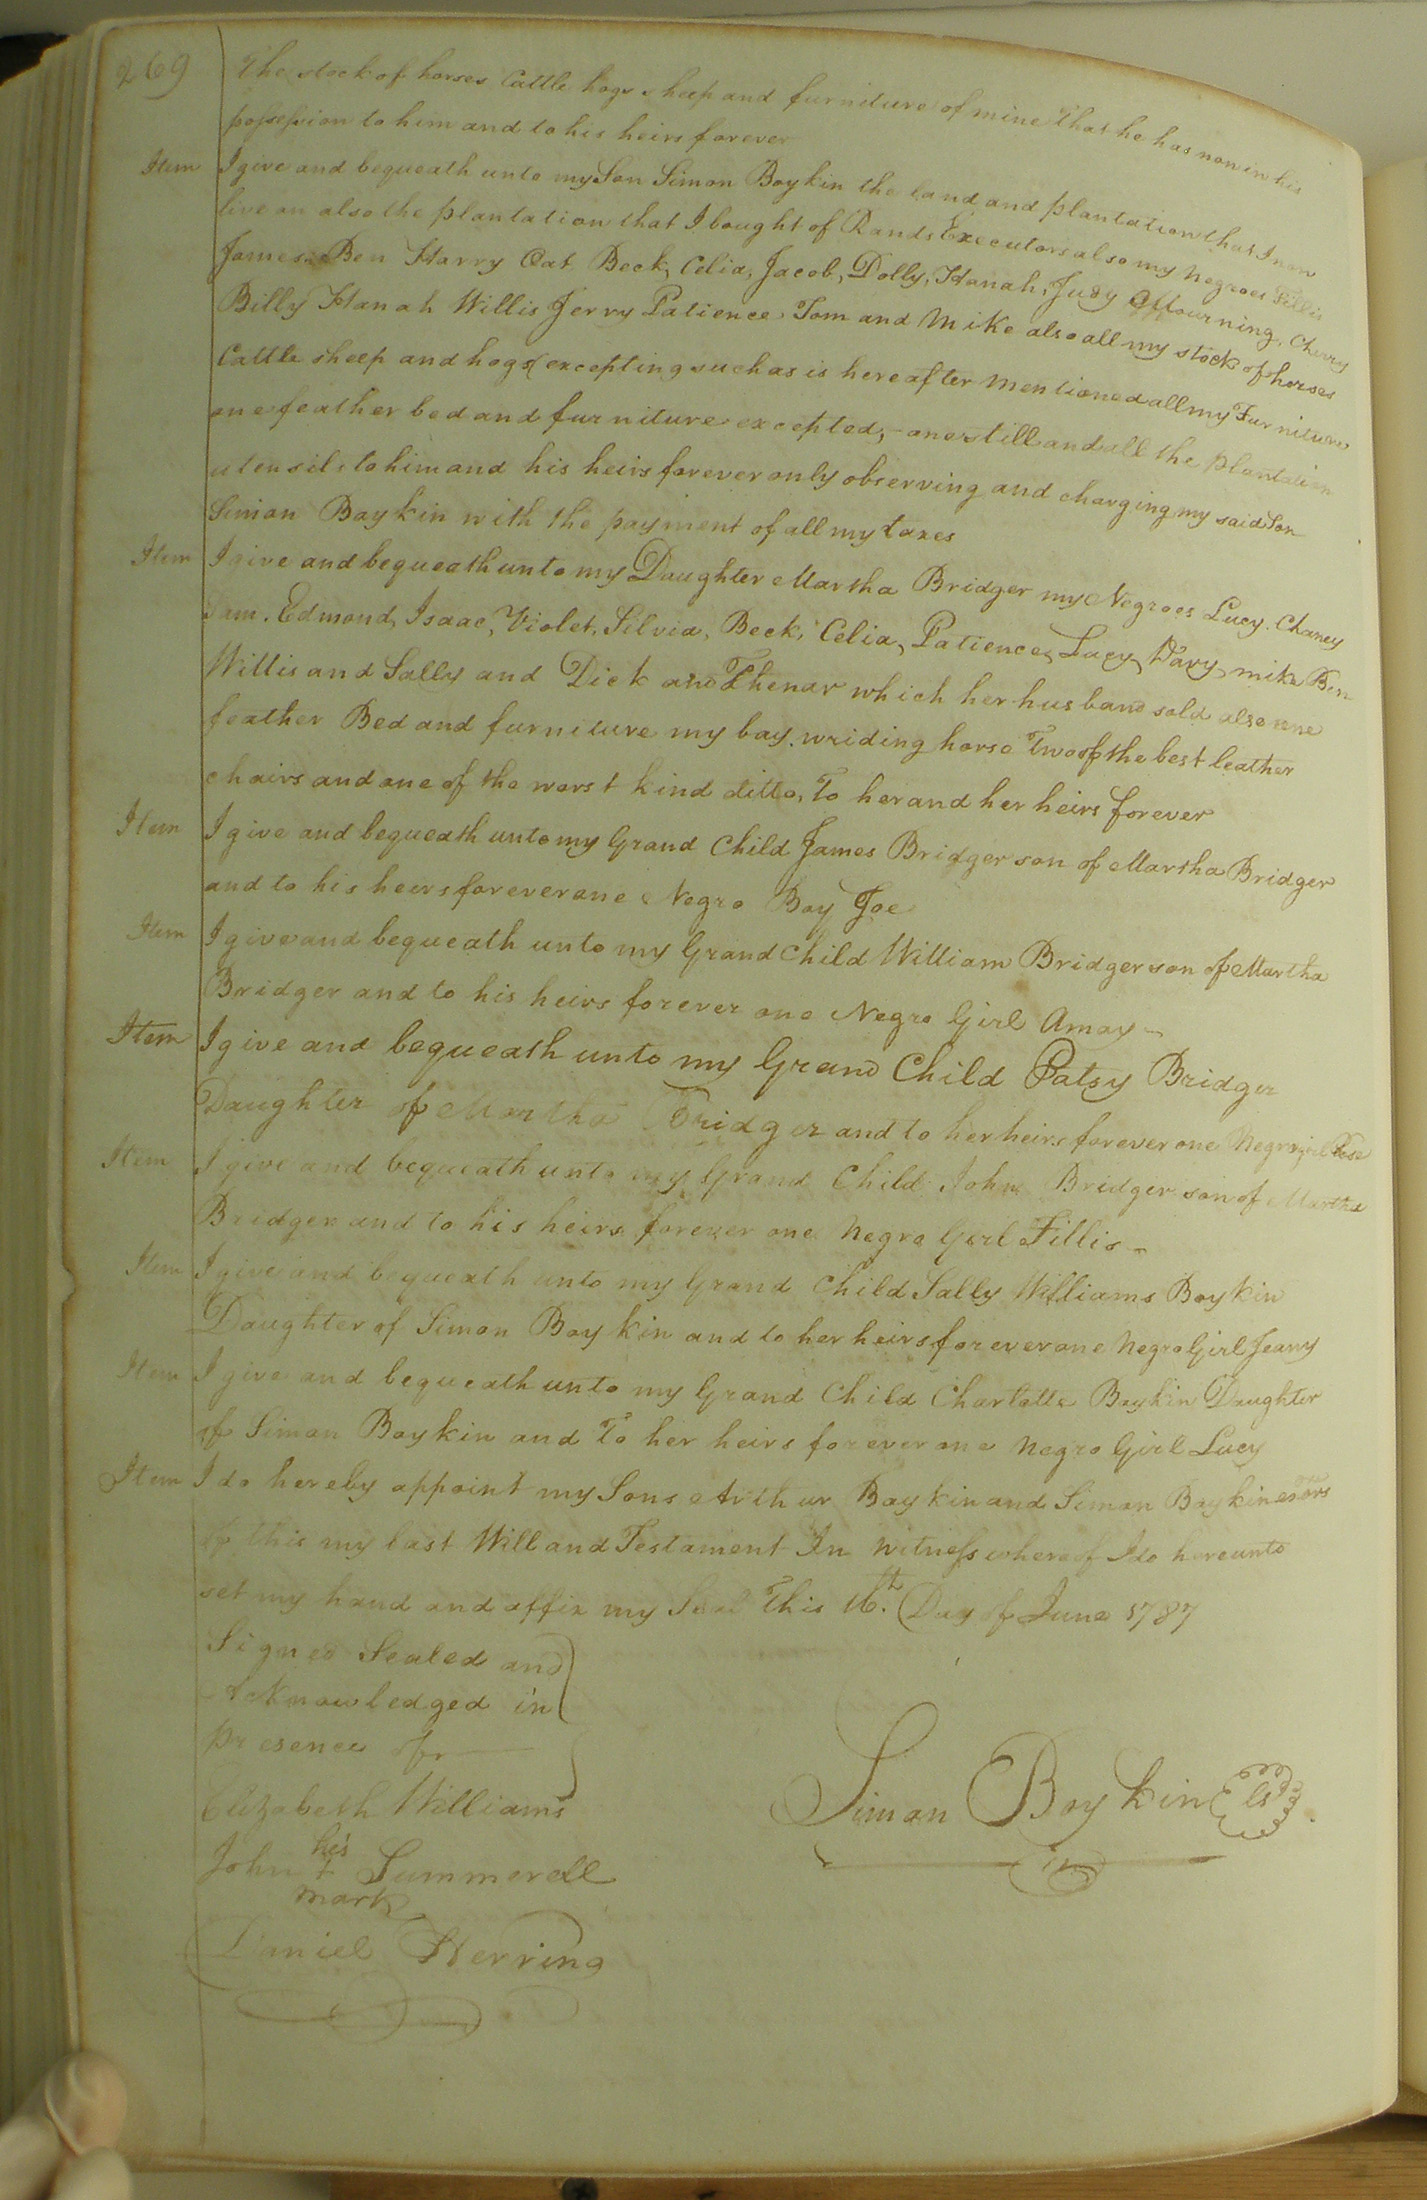 269
The stock of horses Cattle hogs sheep and furniture of mine that he has now in his
possession to him and to his heirs forever
Item I give and bequeath unto my Son Simon Boykin the land and plantation that I now
live on also the plantation that I bought of Rands Executors also my Negroes Fillis
James Ben Harry Cat Beck, Celia, Jacob, Dolly, Hanah, Judy Mourning, Cherry
Billy Hanah Willis Jerry Patience Tom and Mike also all my stock of horses
Cattle sheep and hogs (excepting such as is hereafter mentioned all my Furniture
one feather bed and furniture excepted, - one still and all the plantation
utensils to him and his heirs forever only observing and charging my said Son
Simon Boykin with the payment of all my taxes
Item I give and bequeath unto my Daughter Martha Bridger my Negroes Lucy. Chaney
Sam. Edmond, Isaac, Violet, Silvia, Beck, Celia, Patience, Lucy, Davy, mike Ben
Willis and Sally and Dick and Thenar which her husband sold also one
feather Bed and furniture my bay wriding horse Two of the best leather
chairs and one of the worst kind ditto, To her and her heirs forever
Item I give and bequeath unto my Grand Child James Bridger son of Martha Bridger
and to his heirs forever one Negro Boy Joe
Item I give and bequeath unto my Grand Child William Bridger son of Martha
Bridger and to his heirs forever one Negro Girl Amay -
Item I give and bequeath unto my Grand Child Patsy Bridger
Daughter of Martha Bridger and to her heirs forever one Negro girl Rose
Item I give and bequeath unto my Grand Child John Bridger son of Martha
Bridger and to his heirs forever one Negro Girl Fillis -
Item I give and bequeath unto my Grand Child Sally Williams Boykin
Daughter of Simon Boykin and to her heirs forever one Negro Girl Jeany
Item I give and bequeath unto my Grand Child Charlotte Boykin Daughter
of Simon Boykin and To her heirs forever one Negro Girl Lucy
Item I do hereby appoint my Sons Arthur Boykin and Simon Boykin exors
of this my last Will and Testament In Witness whereof I do hereunto
set my hand and affix my Seal This 16.th Day of June 1787
Signed Sealed and
Acknowledged in
presence of
Elizabeth Williams
Simon Boykin Ls
his
John + Summerell
mark
Daniel Herring